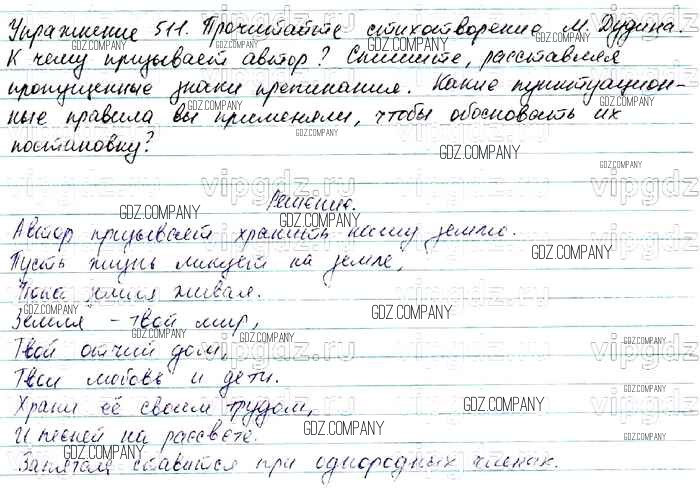 Упражнение 511. Прочитайте стихотворение М. Дудина.
К чему призывает автор? Спишите, расставляя
пропущенные знаки препинания. Какие пунктуацион-
ные правила вы применяли, чтобы обосновать их
постановку?
Решение.
Автор призывает хранить нашу землю.
Пусть жизнь ликует на земле,
Пока земля живая.
Земля – твой мир,
Твой отчий дом,
Твои любовь и дети.
Храни её своим трудом,
И песней на рассвете.
Запятая ставится при однородных членах.
vipgdz.ru
GDZ.COMPANY